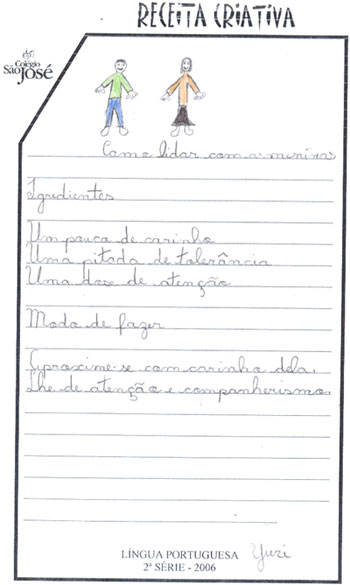 RECEITA CRIATIVA
Colégio
São José
Como lidar com as meninas
Igredientes
Um pouco de carinho
Uma pitada de tolerância
Uma dose de atenção
Modo de fazer
Aproxime-se com carinho dela,
lhe de atenção e companherismo.
LÍNGUA PORTUGUESA Yuri
2ª SÉRIE - 2006